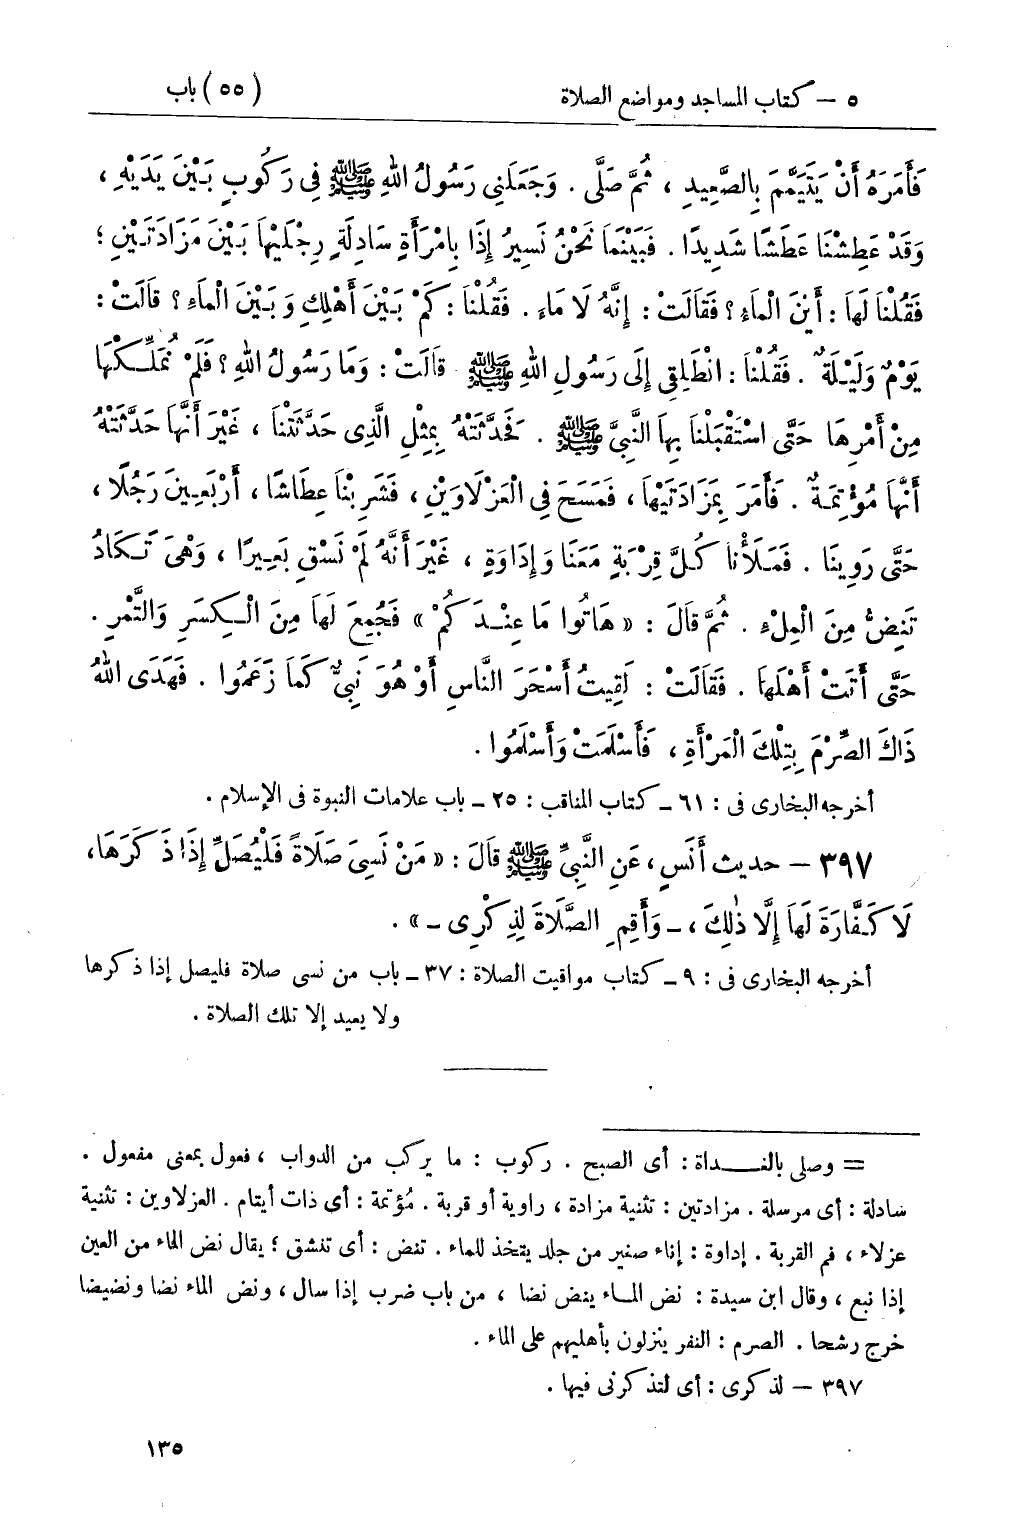 ٥ – كتاب المساجد ومواضع الصلاة (٥٥) باب
فَأَمَرَهُ أَنْ يَتَيَمَّمَ بِالصَّعِيدِ ، ثُمَّ صَلَّى . وَجَعَلَنِى رَسُولُ اللهِ ﷺ فِى رَكُوبٍ بَيْنَ يَدَيْهِ ،
وَقَدْ عَطِشْنَا عَطَشًا شَدِيدًا . فَبَيْنَمَا نَحْنُ نَسِيرُ إِذَا بِامْرَأَةٍ سَادِلَةٍ رِجْلَيْهَا بَيْنَ مَزَادَتَيْنِ ؛
فَقُلْنَا لَهَا : أَيْنَ الْمَاءِ ؟ فَقَالَتْ : إِنَّهُ لَا مَاءَ . فَقُلْنَا : كَمْ بَيْنَ أَهْلِكِ وَبَيْنَ الْمَاءِ ؟ قَالَتْ :
يَوْمٌ وَلَيْلَةٌ . فَقُلْنَا : انْطَلِقِى إِلَى رَسُولِ اللهِ ﷺ قَالَتْ : وَمَا رَسُولُ اللهِ ؟ فَلَمْ نُمَلِّكْهَا
مِنْ أَمْرِهَا حَتَّى اسْتَقْبَلْنَا بِهَا النَّبِىَّ ﷺ . فَحَدَّثَتْهُ بِمِثْلِ الَّذِى حَدَّثَتْنَا ، غَيْرَ أَنَّهَا حَدَّثَتْهُ
أَنَّهَا مُؤْتِمَةٌ . فَأَمَرَ بِمَزَادَتَيْهَا ، فَمَسَحَ فِى الْعَزْلَاوَيْنِ ، فَشَرِبْنَا عِطَاشًا ، أَرْبَعِينَ رَجُلًا ،
حَتَّى رَوِينَا . فَمَلَأْنَا كُلَّ قِرْبَةٍ مَعَنَا وَإِدَاوَةٍ ، غَيْرَ أَنَّهُ لَمْ نَسْقِ بَعِيرًا ، وَهْىَ تَكَادُ
تَنِضُّ مِنَ الْمِلْءِ . ثُمَّ قَالَ : « هَاتُوا مَا عِنْدَكُمْ » فَجُمِعَ لَهَا مِنَ الْكِسَرِ وَالتَّمْرِ .
حَتَّى أَتَتْ أَهْلَهَا . فَقَالَتْ : لَقِيتُ أَسْحَرَ النَّاسِ أَوْ هُوَ نَبِىٌّ كَمَا زَعَمُوا . فَهَدَى اللهُ
ذَاكَ الصِّرْمَ بِتِلْكَ الْمَرْأَةِ ، فَأَسْلَمَتْ وَأَسْلَمُوا .
أخرجه البخارى فى : ٦١ ـ كتاب المناقب : ٢٥ ـ باب علامات النبوة فى الإسلام .
٣٩٧ – حديث أَنَسٍ ، عَنِ النَّبِىِّ ﷺ قَالَ : « مَنْ نَسِىَ صَلَاةً فَلْيُصَلِّ إِذَا ذَكَرَهَا،
لَا كَفَّارَةَ لَهَا إِلَّا ذٰلِكَ ، ـ وَأَقِمِ الصَّلَاةَ لِذِكْرِى ـ » .
أخرجه البخارى فى : ٩ ـ كتاب مواقيت الصلاة : ٣٧ ـ باب من نسى صلاة فليصل إذا ذكرها
ولا يعيد إلا تلك الصلاة .
= وصلى بالغداة : أى الصبح . ركوب : ما يركب من الدواب ، فعول بمعنى مفعول .
سادلة : أى مرسلة . مزادتين : تثنية مزادة ، راوية أو قربة . مُؤتمة : أى ذات أيتام . العزلاوين : تثنية
عزلاء ، فم القربة . إداوة : إناء صغير من جلد يتخذ للماء . تنض : أى تنشق ؛ يقال نض الماء من العين
إذا نبع ، وقال ابن سيدة : نض الماء ينض نضا ، من باب ضرب إذا سال ، ونض الماء نضا ونضيضا
خرج رشحا . الصرم : النفر ينزلون بأهليهم على الماء .
٣٩٧ – لذكرى : أى لتذكرنى فيها .
١٣٥